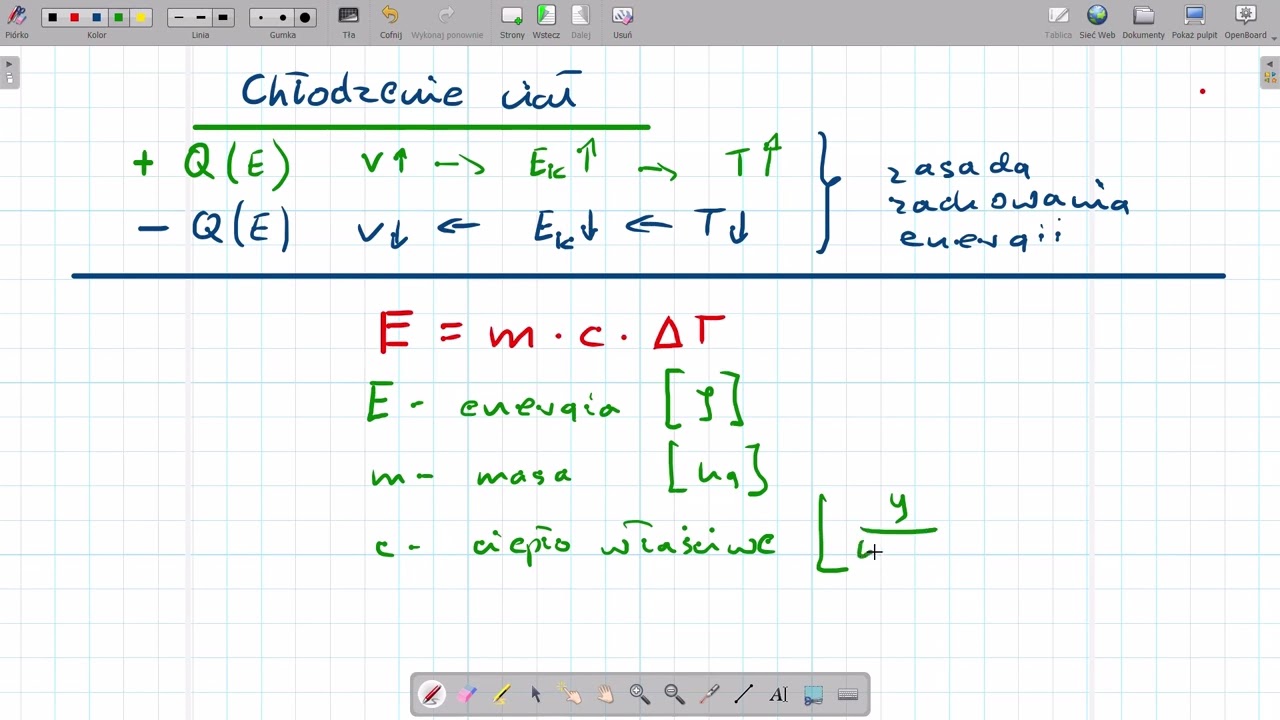 Piórko Kolor Linia Gumka Tła Cofnij Wykonaj ponownie Strony Wstecz Dalej Usuń Tablica Sieć Web Dokumenty Pokaż pulpit OpenBoard
Chłodzenie ciał
+ Q(E) v↑ -> Ek↑ -> T↑
- Q(E) v↓ <- Ek↓ <- T↓
zasada
zachowania
energii
E = m · c · ΔT
E - energia [J]
m - masa [kg]
c - ciepło właściwe [ J
AI